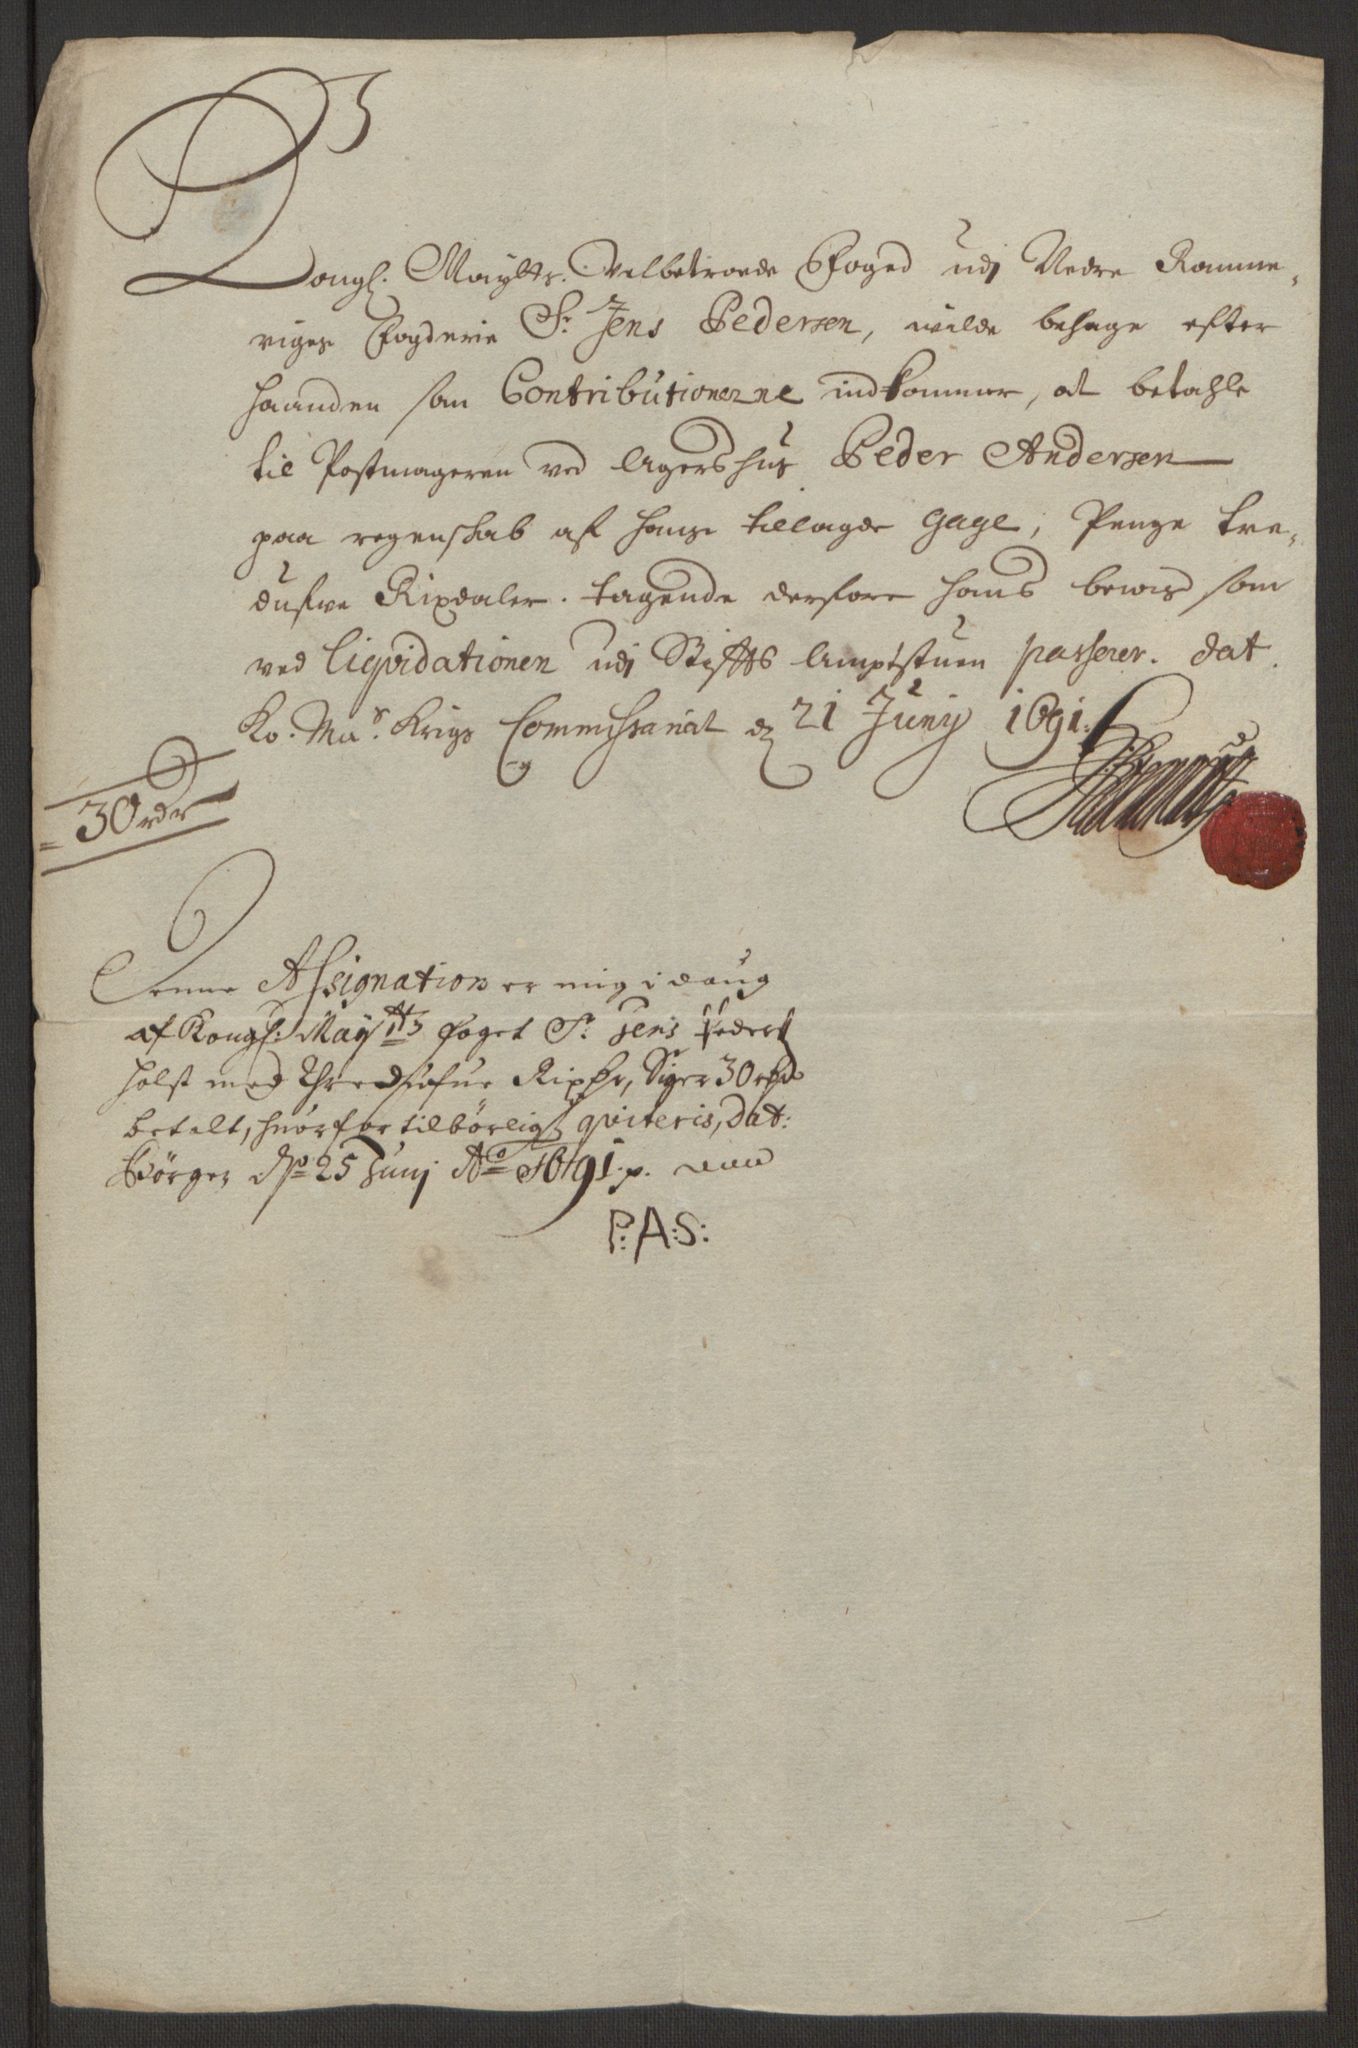 Kongl. Maÿtts. Velbetroede Foged udj Nedre Romme-
riges Fogderie Sr. Jens Pedersen, wilde behage efter
haanden som Contributionerne indkommer, at betahle
til Postmageren ved Agershus Peder Andersen
paa regenskab af hans tillagde gage, Penge tre-
dufve Rixdaler. tagende derfore hans bewis som
ved liqvidationen udj Stiffts Amptstuen passerer. Dat.
Ko. Mas. Krigs Commissariat d. 21 Junÿ 1691.
30 rdr
Denne Assignation er mig i daug
af Kongl: Maÿtts foget Sr. Jens Peders
holst med Thredsufue Rixdr, Siger 30 rds
betalt, huorfor tilbörligt qviteris, Dat:
Börger dend 25 Junj Ao 1691. p.
P: A: S: